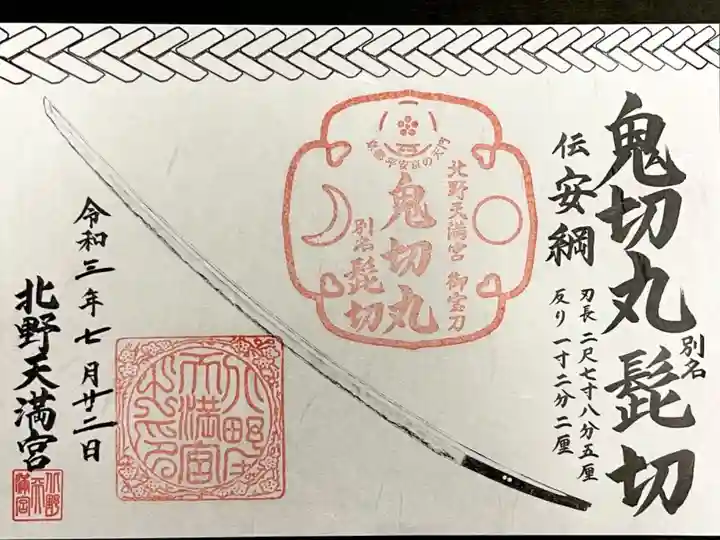 鬼切丸 別名 髭切
伝 安綱
刃長 二尺七寸八分五厘
反り 一寸二分二厘
北野天満宮 御宝刀
鬼切丸
別名 髭切
令和三年七月廿二日
北野天満宮
北野
天
満宮